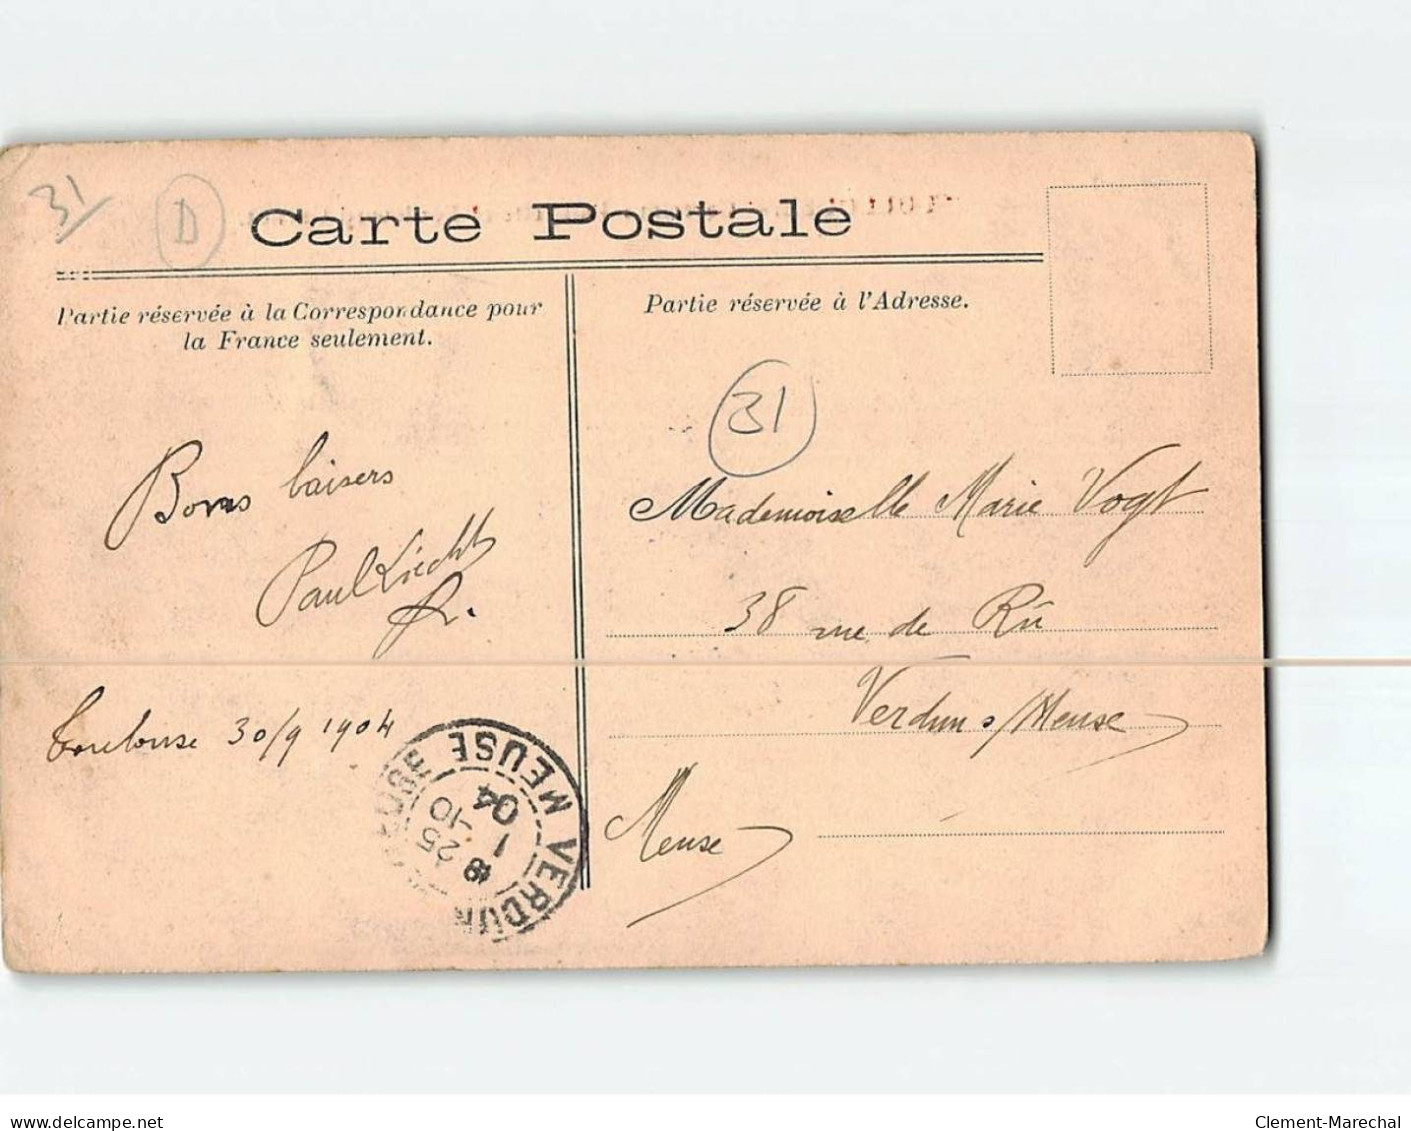 31
D
Carte Postale
Partie réservée à la Correspondance pour
la France seulement.
Bons baisers
Paul
Toulouse 30/9 1904
VERDUN MEUSE
8
25
1 -10
04
Partie réservée à l'Adresse.
31
Mademoiselle Marie Vogt
38 rue de Rû
Verdun s/Meuse
Meuse
www.delcampe.net
Clement-Marechal